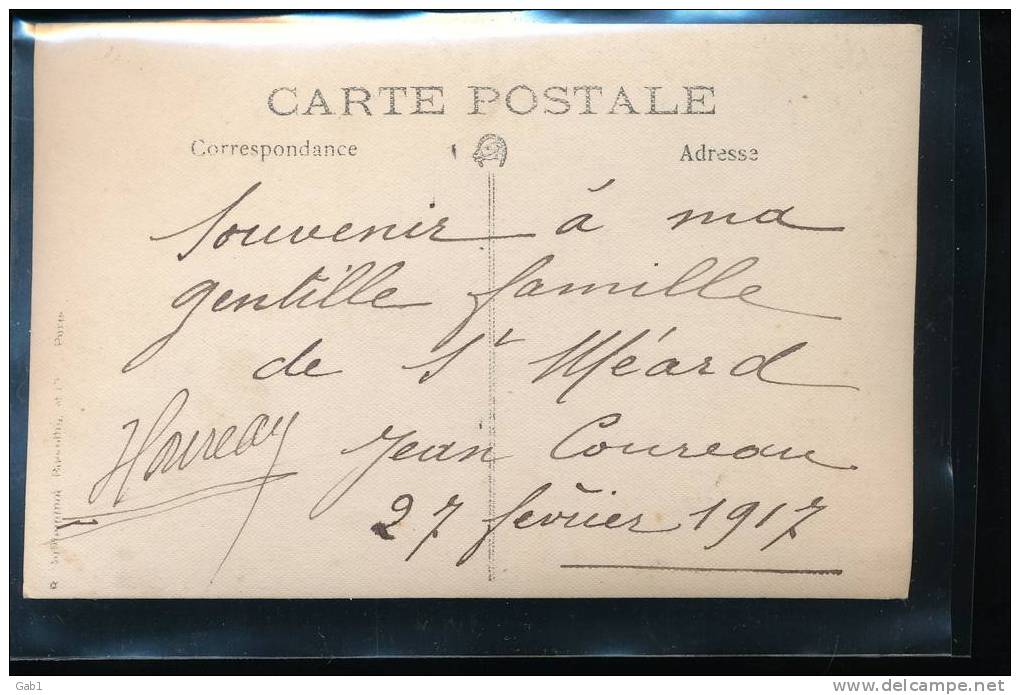 CARTE POSTALE
Correspondance Adresse
Souvenir à ma
gentille famille
de St Méard
Jean Coureau
27 février 1917
Paris
Gab1
delcampe.net